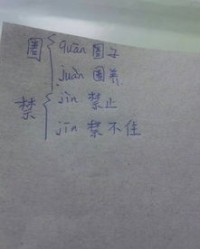 圈 quān 圈子
juàn 圈养
禁 jìn 禁止
jīn 禁不住